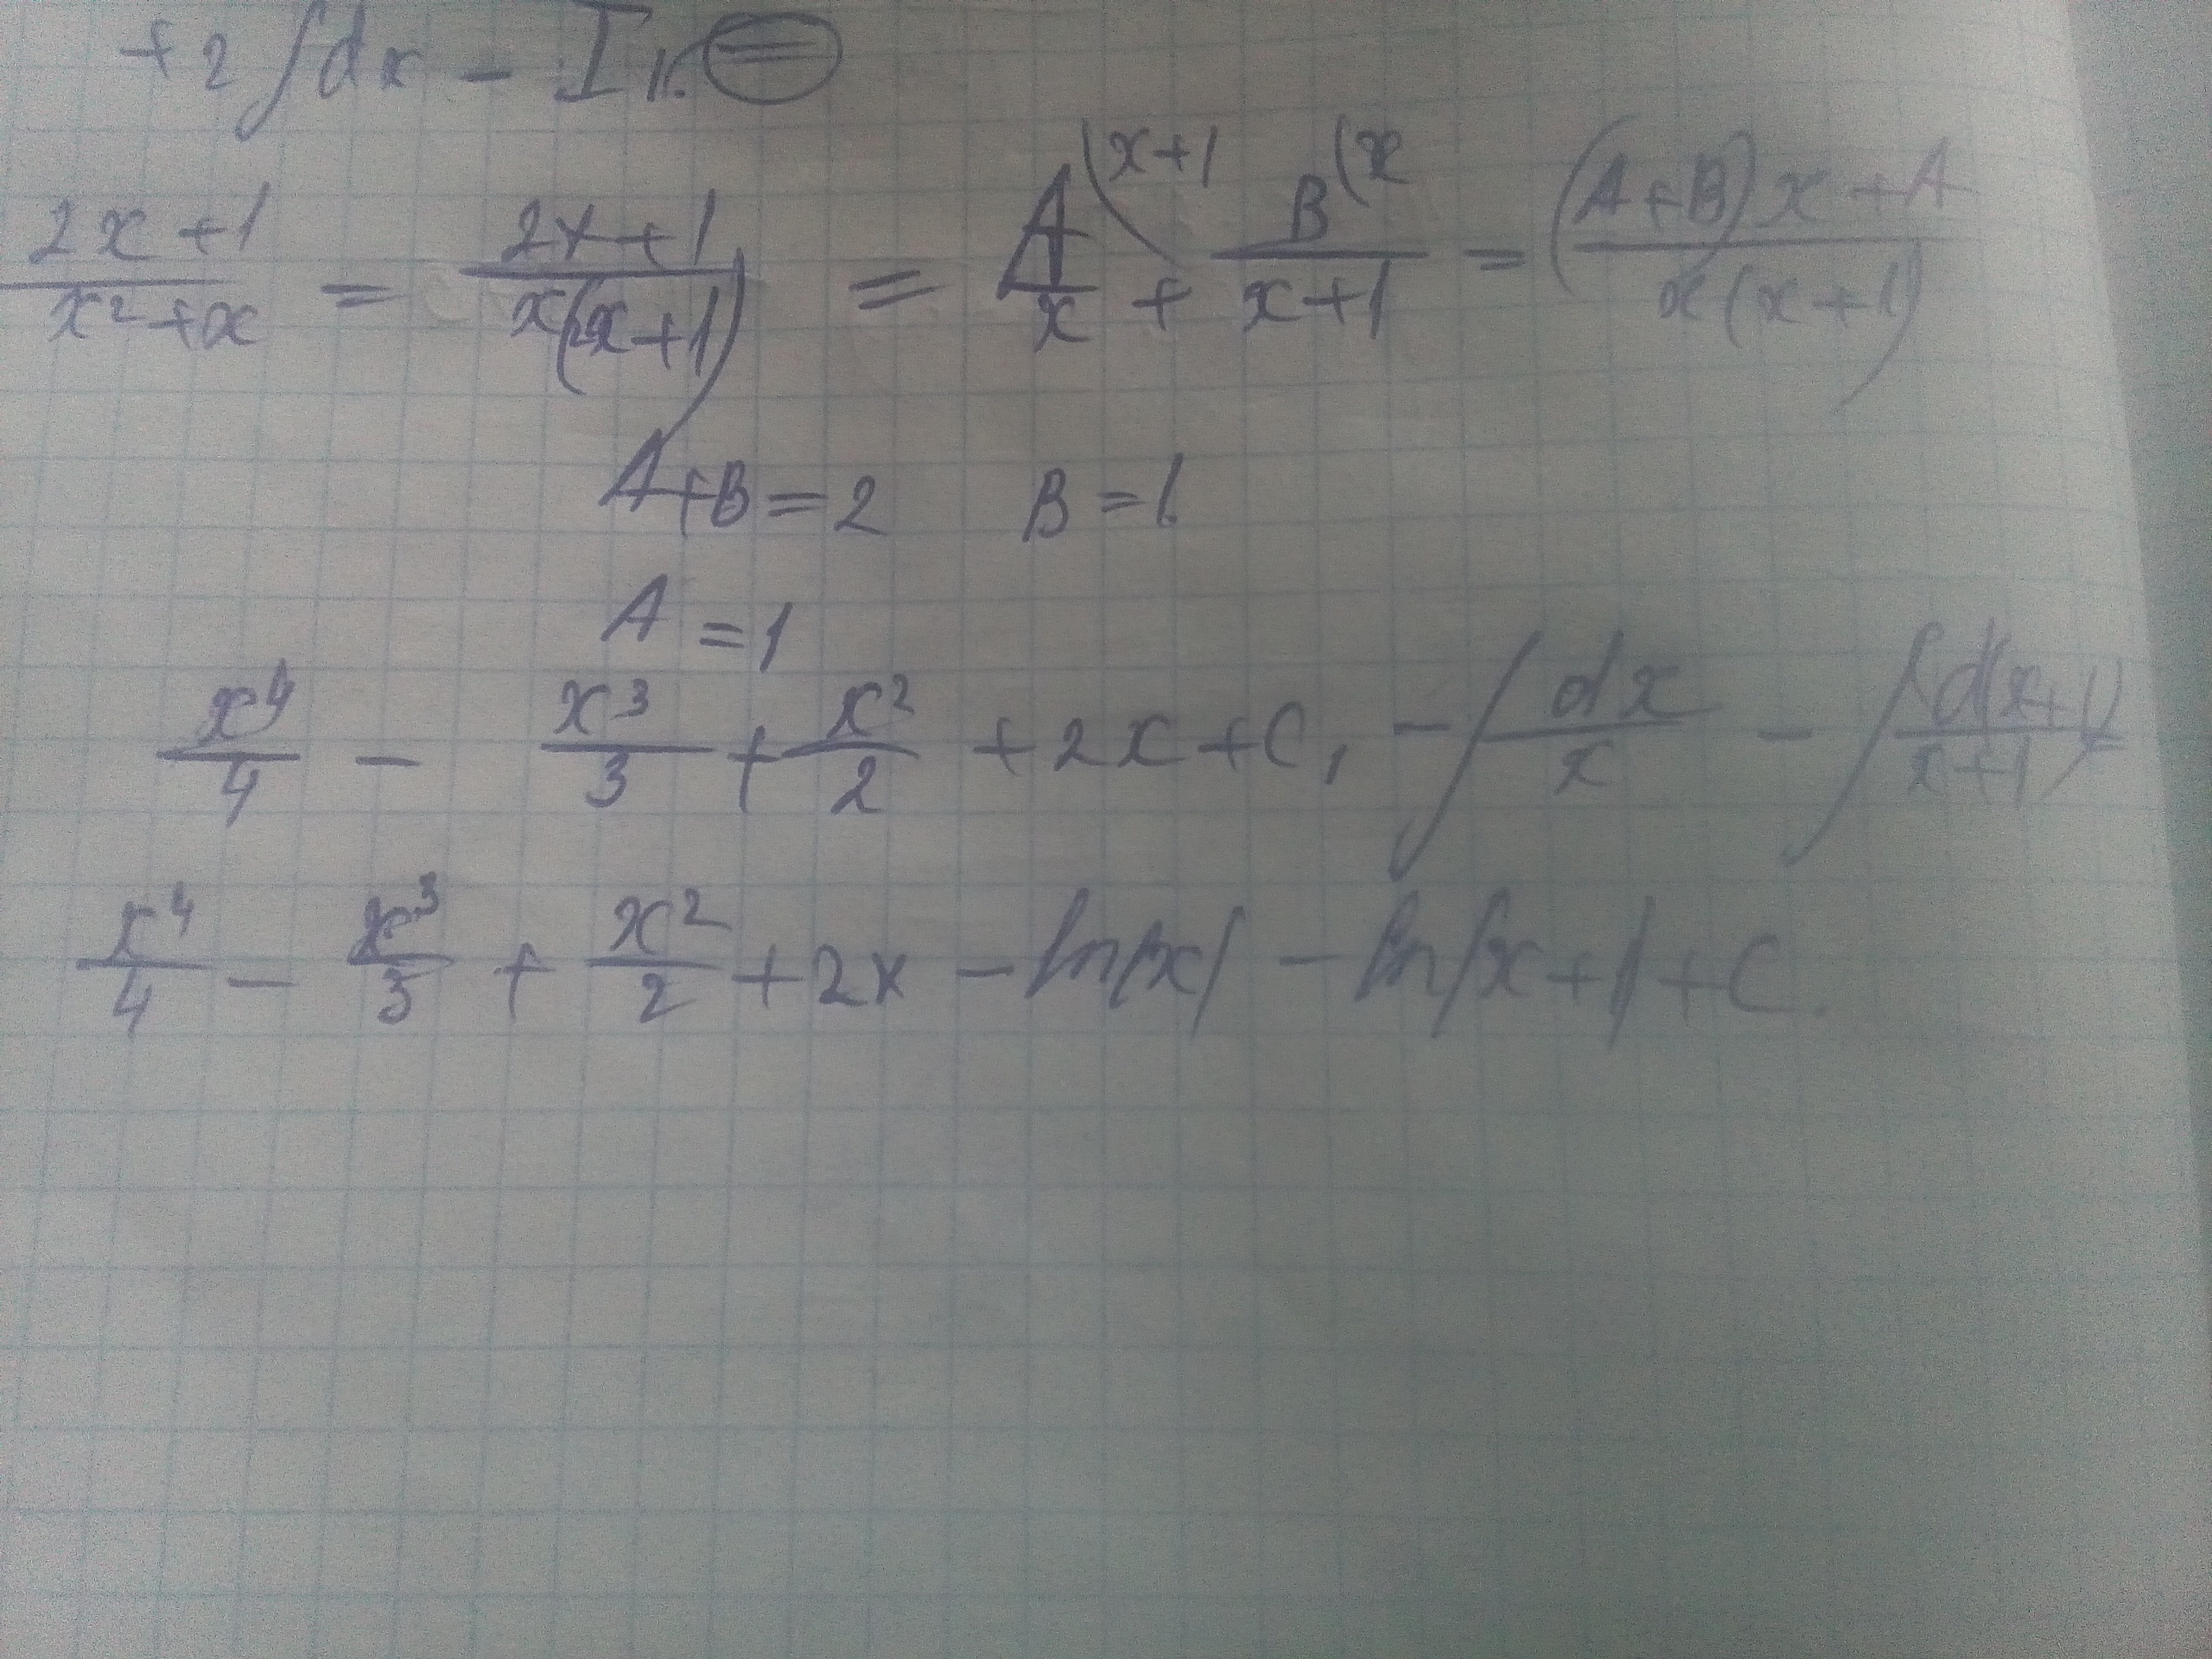 +2∫dx - I₁. =
2x+1/x²+x = 2x+1/x(x+1) = A(x+1/x + B(x/x+1 = (A+B)x+A/x(x+1)
A+B=2 B=1.
A=1
x⁴/4 - x³/3 + x²/2 + 2x + C, - ∫dx/x - ∫d(x+1)/x+1
x⁴/4 - x³/3 + x²/2 + 2x - ln|x| - ln|x+1|+C.